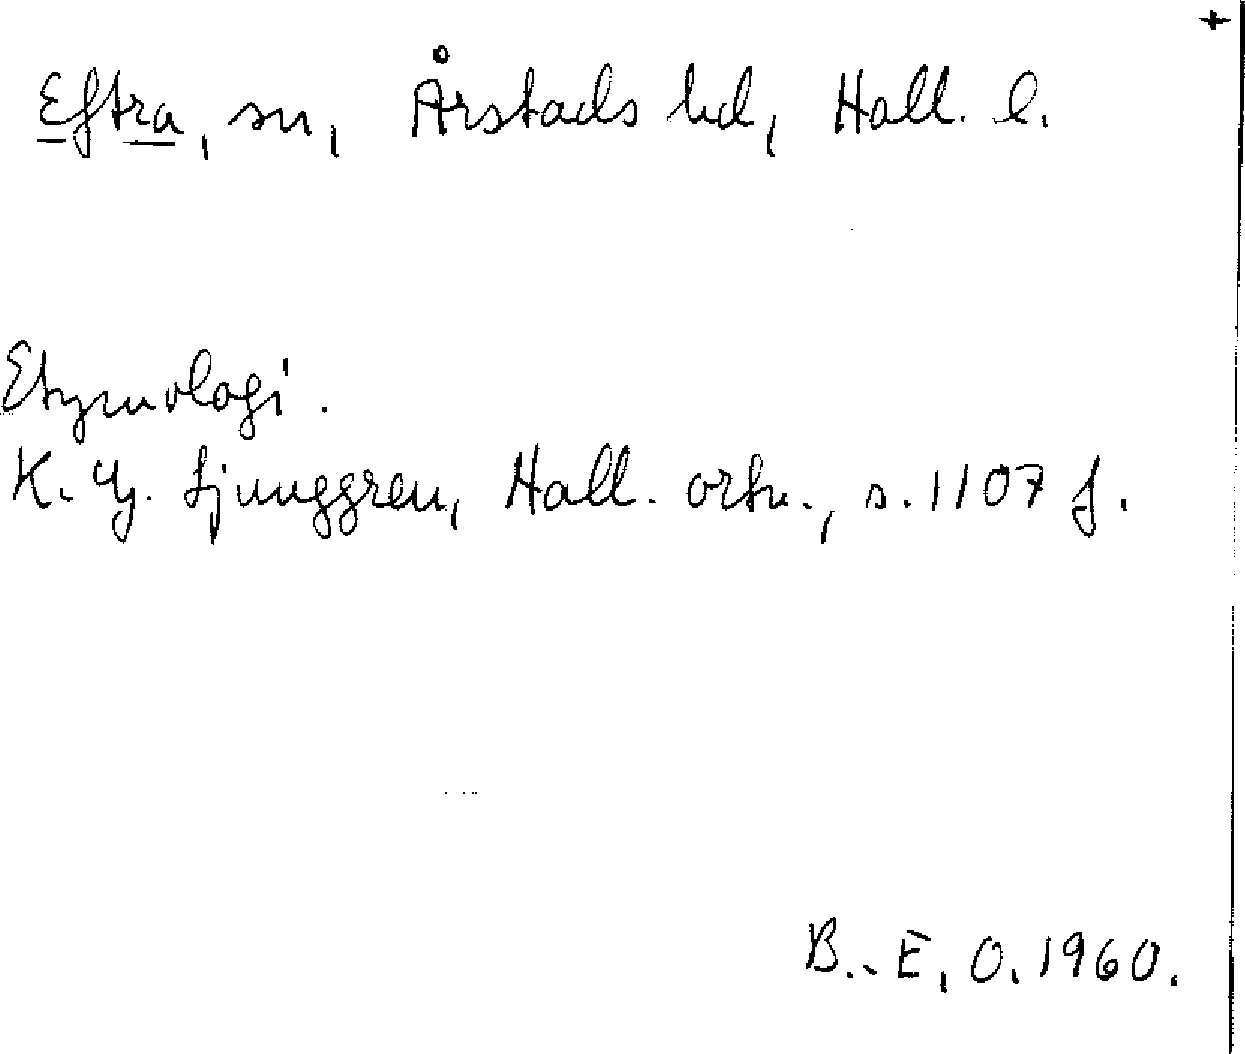 +
Eftra, sn, Årstads hd, Hall. l.
Etymologi.
K. G. Ljunggren, Hall. ortn., s. 1107 f.
B.-E. O. 1960.